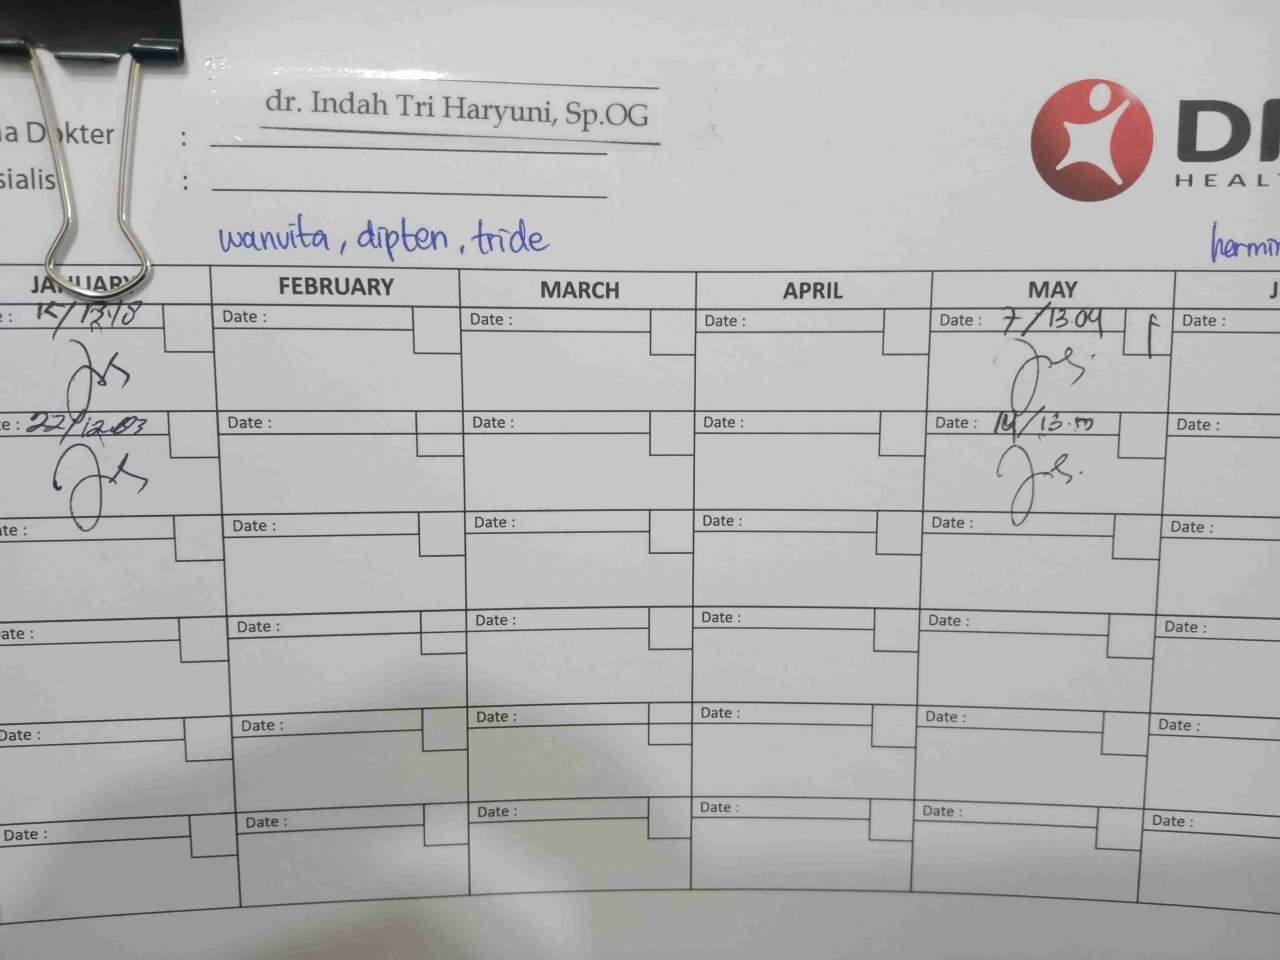 dr. Indah Tri Haryuni, Sp.OG
a Dokter :
sialis :
HEAL
wanvita, dipten, tride
hermin
JANUARY FEBRUARY MARCH APRIL MAY J
: 15/13.18 Date : Date : Date : Date : 7/13.04 F Date :
e : 22/12.03 Date : Date : Date : Date : 14/13. Date :
ate : Date : Date : Date : Date : Date :
ate : Date : Date : Date : Date : Date :
Date : Date : Date : Date : Date : Date :
Date : Date : Date : Date : Date : Date :